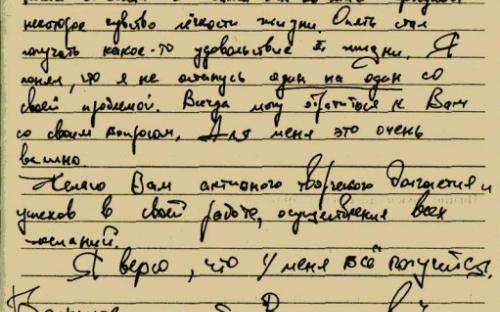 некоторое чувство лёгкости жизни. Опять стал
получать какое-то удовольствие жизни. Я
понял, что я не останусь один на один со
своей проблемой. Всегда могу обратиться к Вам
со своим вопросом. Для меня это очень
важно.
Желаю Вам активного творческого долголетия и
успехов в своей работе, осуществления всех
желаний.
Я верю, что у меня всё получится.